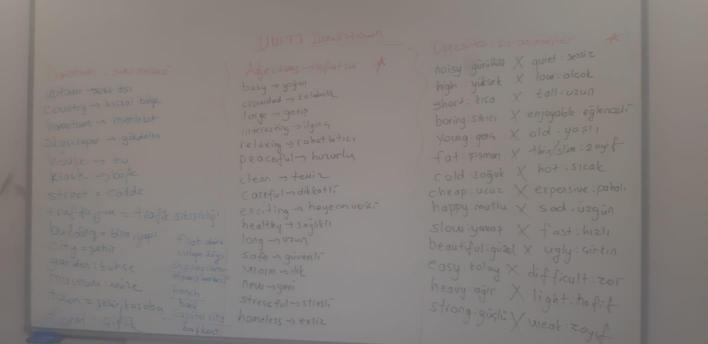 UNIT7 Downtown
Country → kırsal bölge
Skyscraper → gökdelen
House → ev
Kiosk → büfe
street = cadde
traffic jam = trafik sıkışıklığı
building = bina, yapı
City = şehir
garden = bahçe
museum = müze
town = şehir, kasaba
Capital city
başkent
busy → yoğun
crowded → kalabalık
large → geniş
interesting → ilginç
relaxing → rahatlatıcı
peaceful → huzurlu
clean → temiz
careful → dikkatli
exciting → heyecan verici
healthy → sağlıklı
long → uzun
safe → güvenli
warm → ılık
new → yeni
stressful → stresli
homeless → evsiz
noisy: gürültülü X quiet: sessiz
high: yüksek X low: alçak
short: kısa X tall: uzun
boring: sıkıcı X enjoyable: eğlenceli
young: genç X old: yaşlı
fat: şişman X thin/slim: zayıf
cold: soğuk X hot: sıcak
cheap: ucuz X expensive: pahalı
happy: mutlu X sad: üzgün
slow: yavaş X fast: hızlı
beautiful: güzel X ugly: çirkin
easy: kolay X difficult: zor
heavy: ağır X light: hafif
strong: güçlü X weak: zayıf